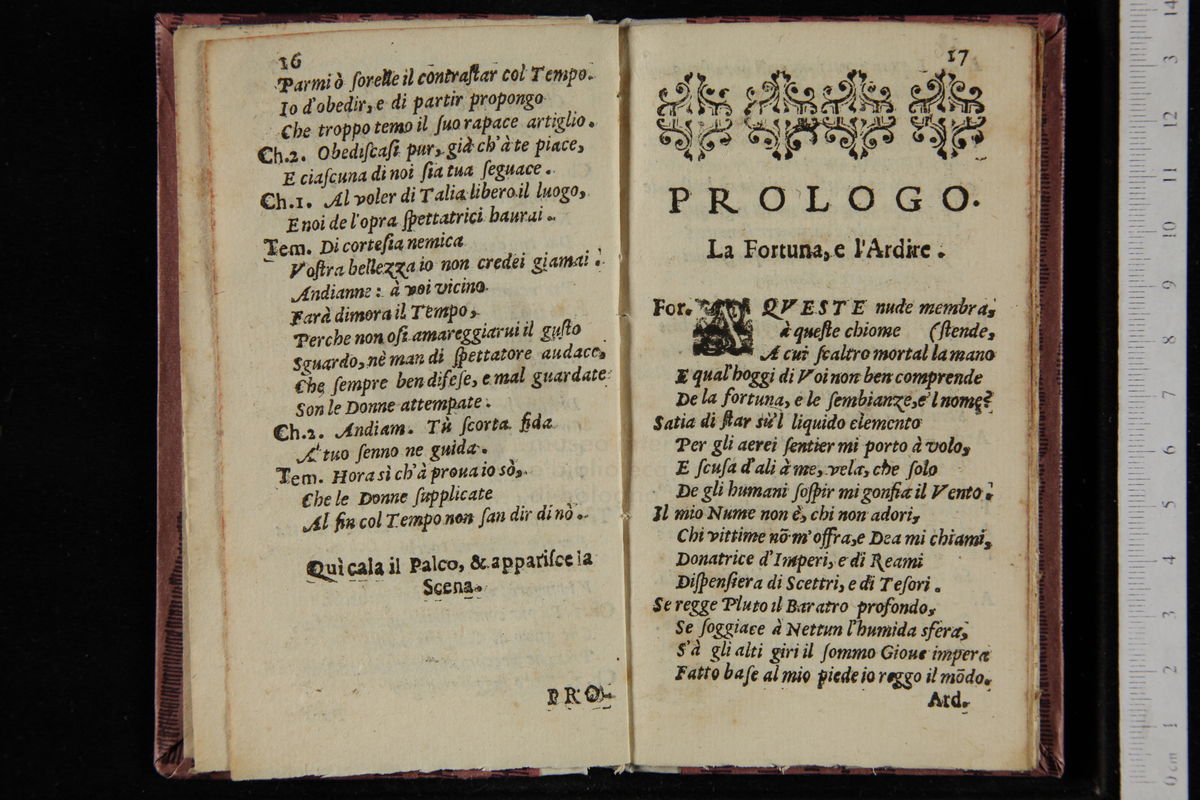 16
Parmi ò ſorelle il contraſtar col Tempo.
Io d'obedir, e di partir propongo
Che troppo temo il ſuo rapace artiglio.
Ch.2. Obediſcaſi pur, già ch'à te piace,
E ciaſcuna di noi ſia tua ſeguace.
Ch.1. Al voler di Talia libero il luogo,
E noi de l'opra ſpettatrici haurai.
Tem. Di corteſia nemica
Voſtra bellezza io non credei giamai.
Andianne: à voi vicino
Farà dimora il Tempo,
Perche non oſi amareggiarui il guſto
Sguardo, nè man di ſpettatore audace,
Che ſempre ben difeſe, e mal guardate
Son le Donne attempate.
Ch.2. Andiam. Tù ſcorta fida
A' tuo ſenno ne guida.
Tem. Hora sì ch'à proua io sò,
Che le Donne ſupplicate
Al fin col Tempo non ſan dir di nò.
Quì cala il Palco, & appariſce la
Scena.
PRO-
17
PROLOGO.
La Fortuna, e l'Ardire.
For. A QVESTE nude membra,
à queſte chiome (ſtende,
A cui ſcaltro mortal la mano
E qual'hoggi di Voi non ben comprende
De la fortuna, e le ſembianze, e'l nome?
Satia di ſtar sù'l liquido elemento
Per gli aerei ſentier mi porto à volo,
E ſcuſa d'ali à me, vela, che ſolo
De gli humani ſoſpir mi gonfia il Vento.
Il mio Nume non è, chi non adori,
Chi vittime nõ m'offra, e Dea mi chiami,
Donatrice d'Imperi, e di Reami
Diſpenſiera di Scettri, e di Teſori.
Se regge Pluto il Baratro profondo,
Se ſoggiace à Nettun l'humida sfera,
S'à gli alti giri il ſommo Gioue impera
Fatto baſe al mio piede io reggo il mõdo.
Ard.